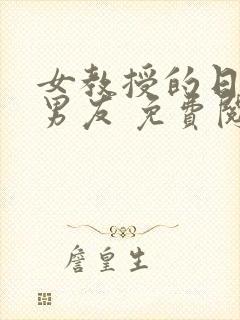 女教授的日
男友 免費閱
詹皇生